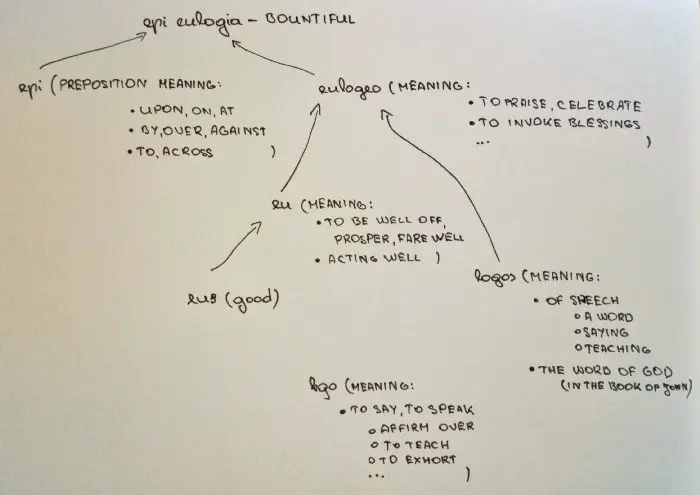 epi eulogia - BOUNTIFUL
epi (PREPOSITION MEANING:
• UPON, ON, AT
• BY, OVER, AGAINST
• TO, ACROSS )
eulogeo (MEANING:
• TO PRAISE, CELEBRATE
• TO INVOKE BLESSINGS
... )
eu (MEANING:
• TO BE WELL OFF,
PROSPER, FARE WELL
• ACTING WELL )
eus (good)
logos (MEANING:
• OF SPEECH
o A WORD
o SAYING
o TEACHING
• THE WORD OF GOD
(IN THE BOOK OF JOHN)
lego (MEANING:
• TO SAY, TO SPEAK
o AFFIRM OVER
o TO TEACH
o TO EXHORT
... )